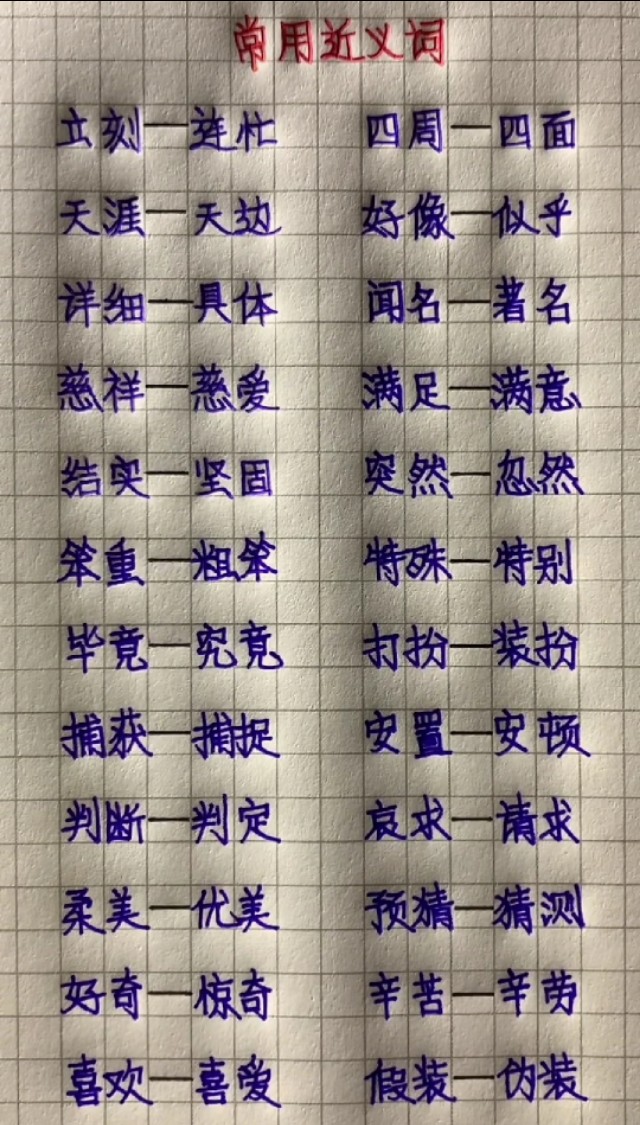 常用近义词
立刻—连忙 四周—四面
天涯—天边 好像—似乎
详细—具体 闻名—著名
慈祥—慈爱 满足—满意
结实—坚固 突然—忽然
笨重—粗笨 特殊—特别
毕竟—究竟 打扮—装扮
捕获—捕捉 安置—安顿
判断—判定 哀求—请求
柔美—优美 预猜—猜测
好奇—惊奇 辛苦—辛劳
喜欢—喜爱 假装—伪装